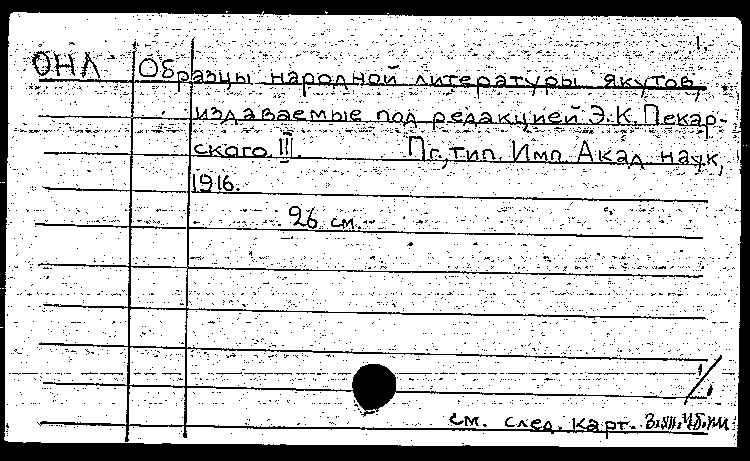 1.
ОНЛ Образцы народной литературы якутов,
издаваемые под редакцией Э.К. Пекар-
ского. III. Пг., тип. Имп. Акад. наук,
1916.
26 см.
см. след. карт.